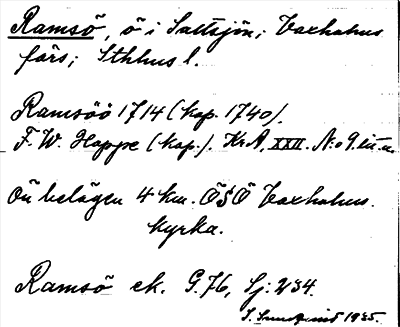 Ramsö, ö i Saltsjön; Vaxholms
förs; Sthlms l.
Ramsöö 1714 (kop. 1740).
F. W. Hoppe (kop.). Kr.A, XXII. N:o 9.
Ön belägen 4 km. ÖSÖ Vaxholms
kyrka.
Ramsö ek. G.76, Sj: 234.
1935.